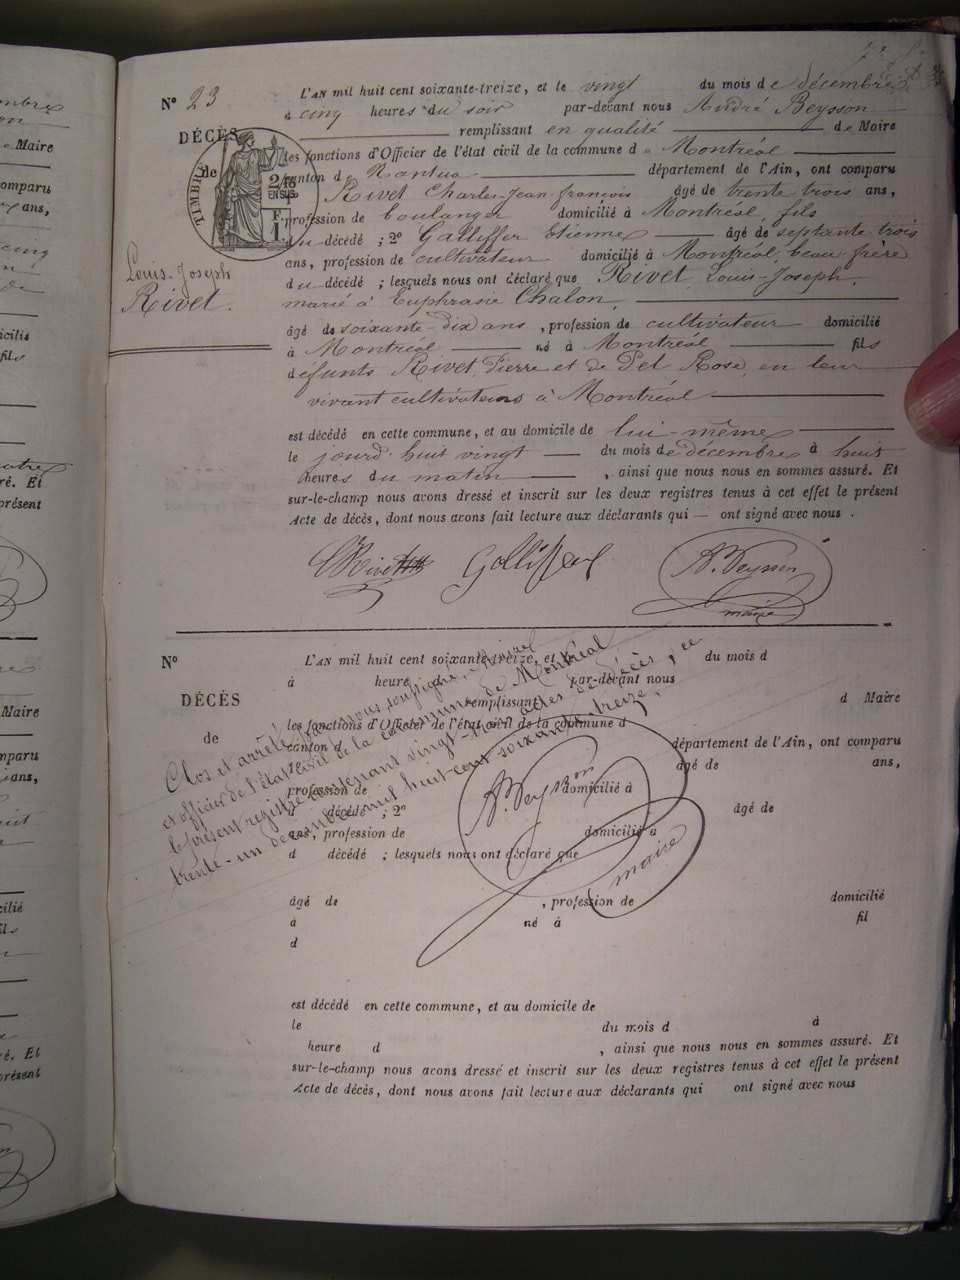 N° 23
DÉCÈS
de
Louis-Joseph
Rivet.
TIMBRE
L'AN mil huit cent soixante-treize, et le vingt du mois de décembre
à cinq heures du soir par-devant nous André Beysson
remplissant en qualité de Maire
les fonctions d'Officier de l'état civil de la commune de Montréal
canton de Nantua département de l'Ain, ont comparu
Rivet Charles-Jean-françois âgé de trente trois ans,
profession de boulanger domicilié à Montréal, fils
du décédé ; 2° Galliffer Etienne âgé de septante-trois
ans, profession de cultivateur domicilié à Montréal, beau frère
du décédé ; lesquels nous ont déclaré que Rivet, Louis-Joseph,
marié à Euphrasie Chalon,
âgé de soixante-dix ans, profession de cultivateur domicilié
à Montréal né à Montréal fils
défunts Rivet, Pierre et de Pel Rose, en leur
vivant cultivateurs à Montréal
est décédé en cette commune, et au domicile de lui-même
le jourd'huit vingt du mois de décembre à huit
heures du matin, ainsi que nous nous en sommes assuré. Et
sur-le-champ nous avons dressé et inscrit sur les deux registres tenus à cet effet le présent
Acte de décès, dont nous avons fait lecture aux déclarants qui — ont signé avec nous.
Rivet Galliffer A. Beysson
maire
N°
DÉCÈS
de
L'AN mil huit cent soixante-treize, et le du mois d
à heure par-devant nous
remplissant d Maire
les fonctions d'Officier de l'état civil de la commune d
canton d département de l'Ain, ont comparu
âgé de ans,
profession de domicilié à
d décédé ; 2° âgé de
ans, profession de domicilié à
d décédé ; lesquels nous ont déclaré que
âgé de , profession de domicilié
à né à fil
d
est décédé en cette commune, et au domicile de
le du mois d à
heure d , ainsi que nous nous en sommes assuré. Et
sur-le-champ nous avons dressé et inscrit sur les deux registres tenus à cet effet le présent
Acte de décès, dont nous avons fait lecture aux déclarants qui ont signé avec nous
Clos et arrêté par nous soussigné, Maire
et officier de l'état civil de la commune de Montréal
le présent registre contenant vingt-trois actes de décès, ce
trente-un décembre mil huit-cent soixante treize,
A. Beysson
maire